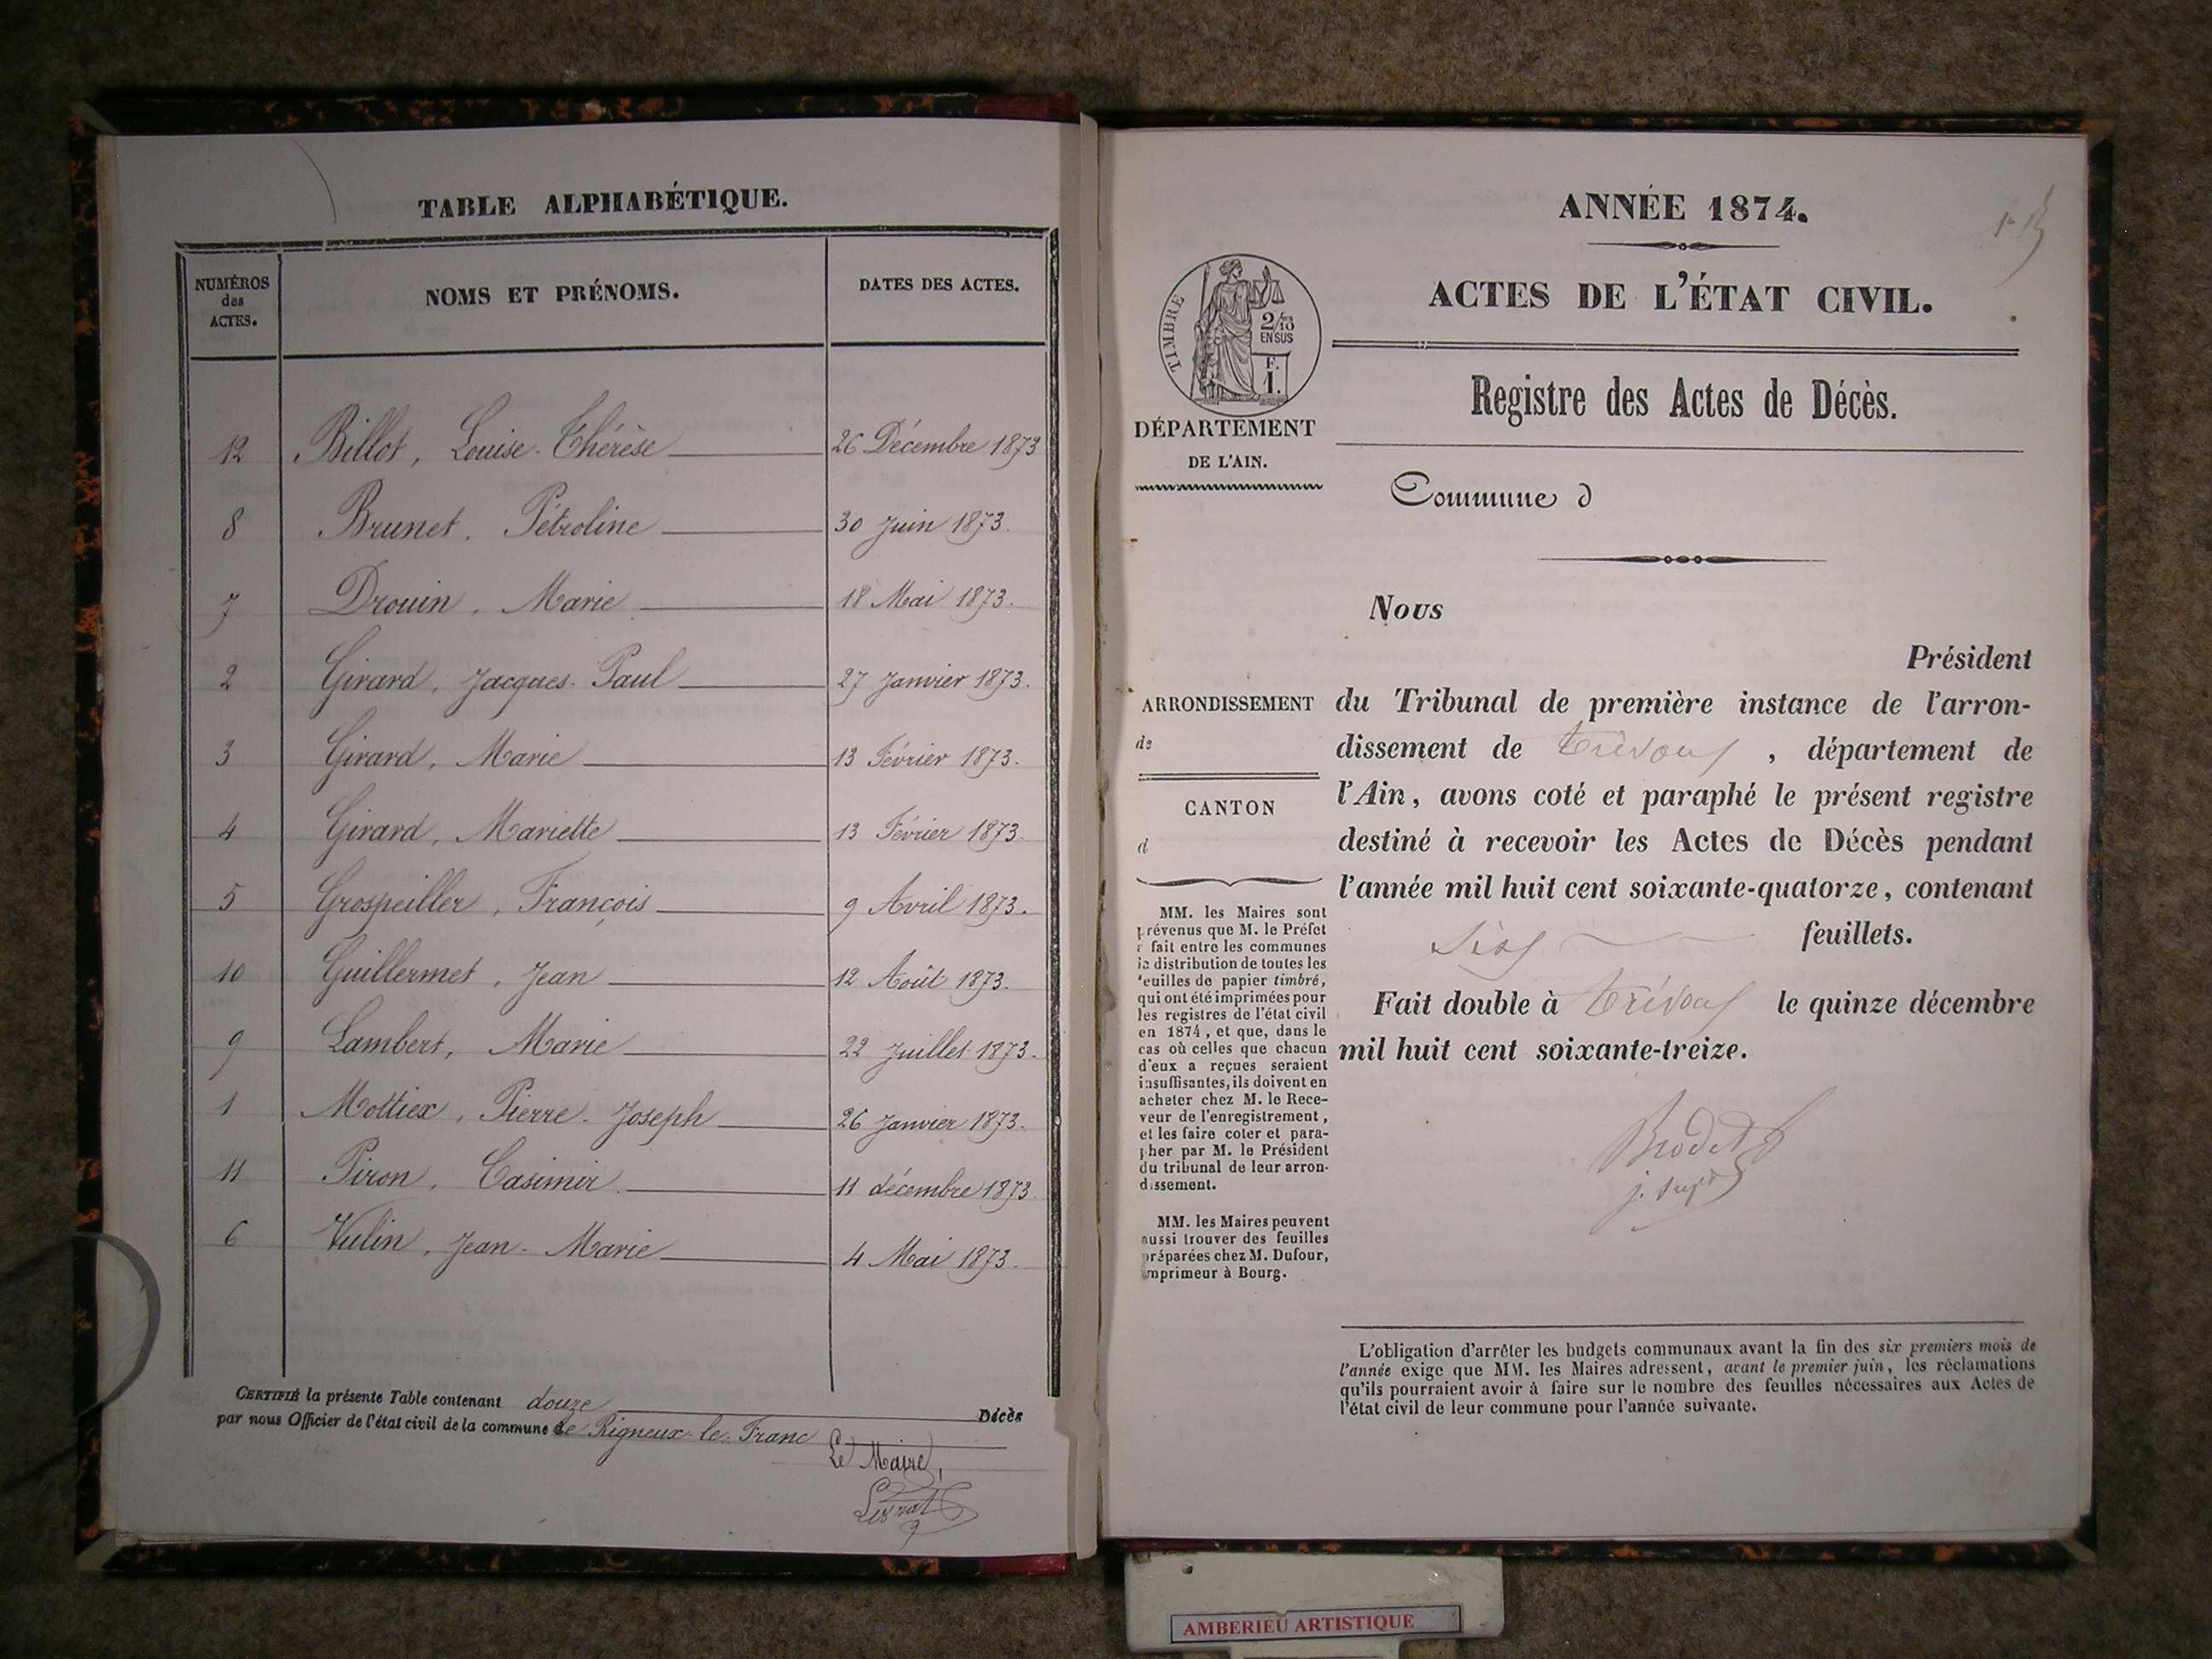 TABLE ALPHABÉTIQUE.
NUMÉROS
des
ACTES.
NOMS ET PRÉNOMS.
DATES DES ACTES.
12 Billot, Louise-Thérèse 26 Décembre 1873
8 Brunet, Pétroline 30 Juin 1873.
7 Drouin, Marie 18 Mai 1873.
2 Girard, Jacques-Paul 27 Janvier 1873.
3 Girard, Marie 13 Février 1873.
4 Girard, Mariette 13 Février 1873.
5 Grospeiller, François 9 Avril 1873.
10 Guillermet, Jean 12 Août 1873.
9 Lambert, Marie 22 Juillet 1873.
1 Mottiex, Pierre-Joseph 26 Janvier 1873.
11 Piron, Casimir 11 décembre 1873
6 Vulin, Jean-Marie 4 Mai 1873.
CERTIFIÉ la présente Table contenant douze Décès
par nous Officier de l'état civil de la commune de Rigneux-le-Franc
Le Maire,
ANNÉE 1874.
ACTES DE L'ÉTAT CIVIL.
TIMBRE
2/10
EN SUS
F.
1.
Registre des Actes de Décès.
DÉPARTEMENT
DE L'AIN.
Commune d
Nous
Président
ARRONDISSEMENT
de
CANTON
d
du Tribunal de première instance de l'arron-
dissement de Trévoux, département de
l'Ain, avons coté et paraphé le présent registre
destiné à recevoir les Actes de Décès pendant
l'année mil huit cent soixante-quatorze, contenant
feuillets.
Fait double à Trévoux le quinze décembre
mil huit cent soixante-treize.
MM. les Maires sont
prévenus que M. le Préfet
a fait entre les communes
la distribution de toutes les
feuilles de papier timbré,
qui ont été imprimées pour
les registres de l'état civil
en 1874, et que, dans le
cas où celles que chacun
d'eux a reçues seraient
insuffisantes, ils doivent en
acheter chez M. le Rece-
veur de l'enregistrement,
et les faire coter et para-
pher par M. le Président
du tribunal de leur arron-
dissement.
MM. les Maires peuvent
aussi trouver des feuilles
préparées chez M. Dufour,
imprimeur à Bourg.
L'obligation d'arrêter les budgets communaux avant la fin des six premiers mois de
l'année exige que MM. les Maires adressent, avant le premier juin, les réclamations
qu'ils pourraient avoir à faire sur le nombre des feuilles nécessaires aux Actes de
l'état civil de leur commune pour l'année suivante.
AMBERIEU ARTISTIQUE